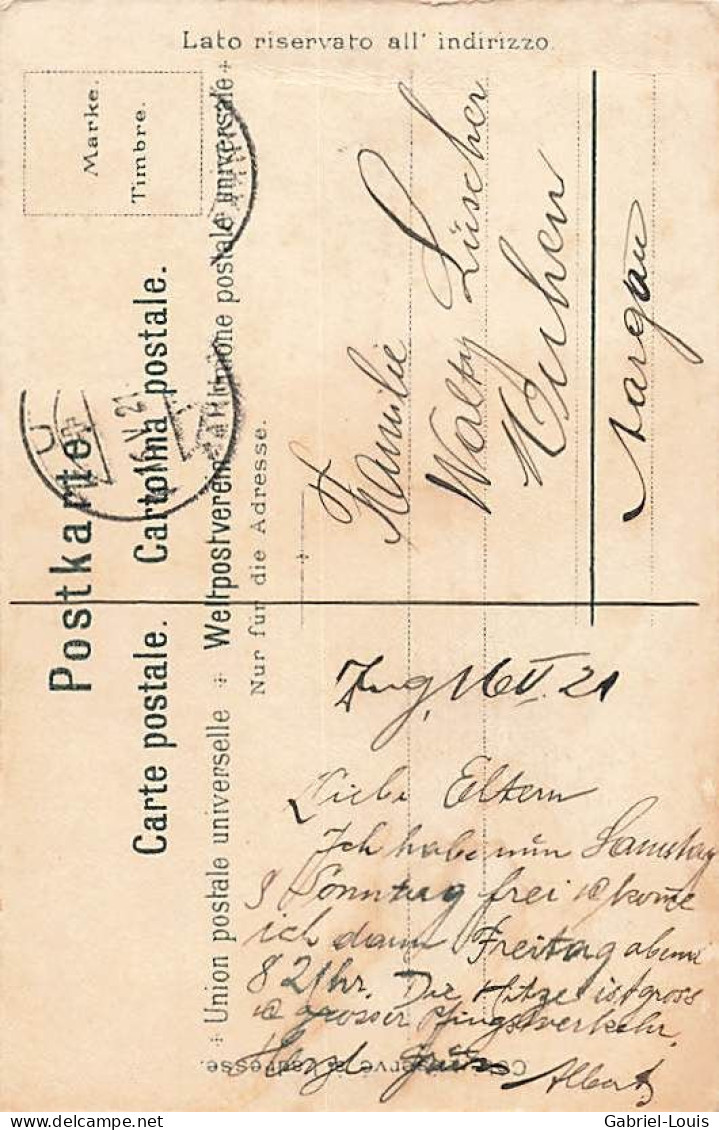 Lato riservato all' indirizzo.
Marke.
Timbre.
Postkarte.
Carte postale. Cartolina postale.
+ Union postale universelle + Weltpostverein + Unione postale universale +
Nur für die Adresse.
Côté réservé à l'adresse.
Familie
Walty Lüscher
Muhen
Aargau
Zug, 16 V. 21
Liebe Eltern
Ich habe nun Samstag
& Sonntag frei & kome
ich dann Freitag abend
8 Uhr. Die Hitze ist gross
& grosser Pfingstverkehr.
Herzl. Gruss
Albert
V. 21
Gabriel-Louis